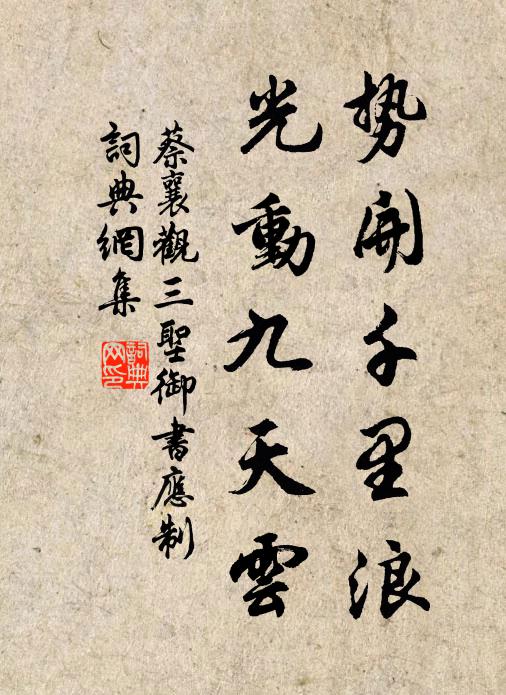 势開千里浪
光動九天雲
蔡襄觀三聖御書應制
詞典網集
詞典
网印